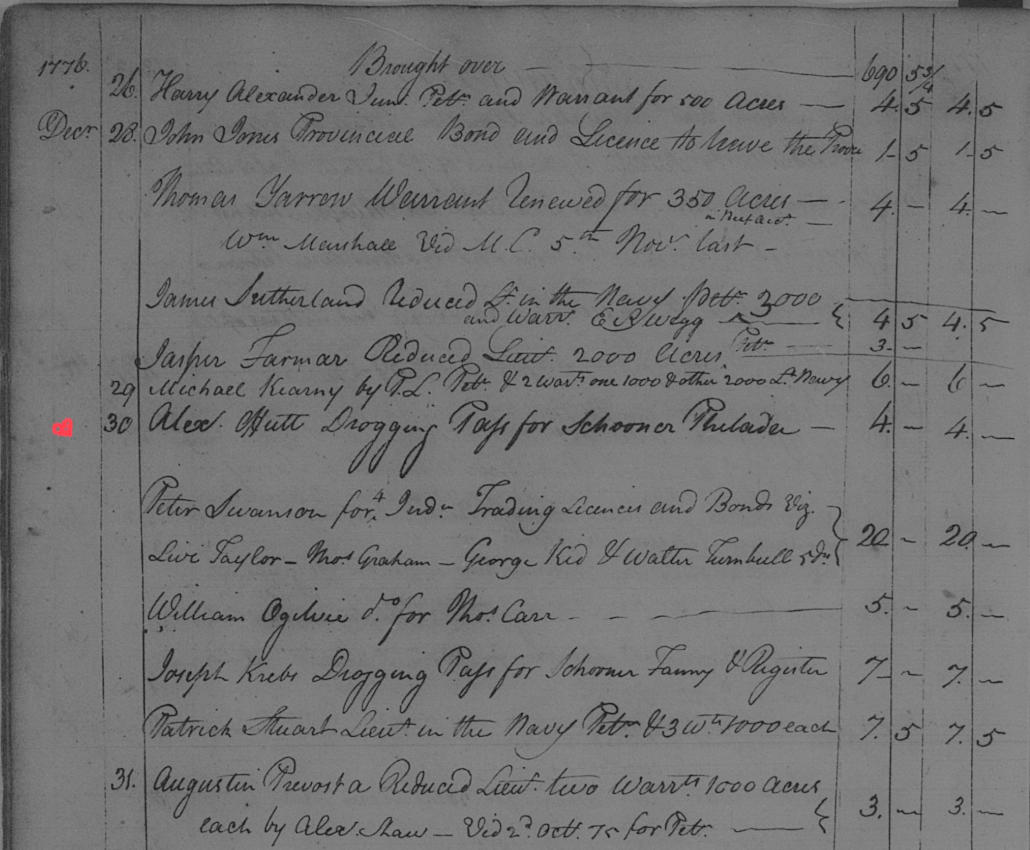 1776. Brought over — 690 5 3/4
26. Harry Alexander Jun. Petn. and Warrant for 500 Acres — 4. 5 4. 5
Decr 28. John Jones Provincial Bond and Licence to leave the Provce 1 - 5 1 - 5
Thomas Yarrow Warrant Renewed for 350 Acres — 4. - 4. —
in Next Acct. —
Wm. Marshall Vid M.C. 5th Novr. last -
James Sutherland Reduced Lt. in the Navy Petn. 2000
and Warrt. E R Wegg — 4 5 4. 5
Jasper Farmar Reduced Lieut. 2000 Acres Petn. — 3. -
29 Michael Kearny by P.L. Petn. & 2 Warts one 1000 & other 2000 Lt. Navy 6. - 6 —
30 Alex. Drogging Pass for Schooner Philada — 4. - 4. —
Peter Swanson for 4 Indn Trading Licences and Bonds Viz.
Livi Taylor - Thos. Graham - George Kid & Walter Turnbull 20 - 20. —
William Ogilvie do. for Thos. Carr - - — 5. - 5. —
Joseph Krebs Drogging Pass for Schooner Fanny & Register 7 - - 7. —
Patrick Stuart Lieut. in the Navy Petn. & 3 Wts 1000 each 7. 5 7. 5
31. Augustin Prevost a Reduced Lieut. two Warrts 1000 Acres
each by Alex Shaw — Vid 2d. Octr. 75 for Petn. — 3. — 3. —